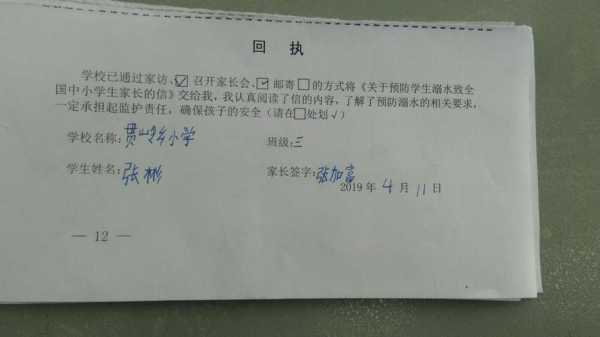 回 执
学校已通过家访、☑召开家长会、☑邮寄□的方式将《关于预防学生溺水致全
国中小学生家长的信》交给我，我认真阅读了信的内容，了解了预防溺水的相关要求，
一定承担起监护责任，确保孩子的安全（请在□处划√）
学校名称：贯岭乡小学 班级：三
学生姓名：张彬 家长签字：张加富
2019 年 4 月 11 日
— 12 —